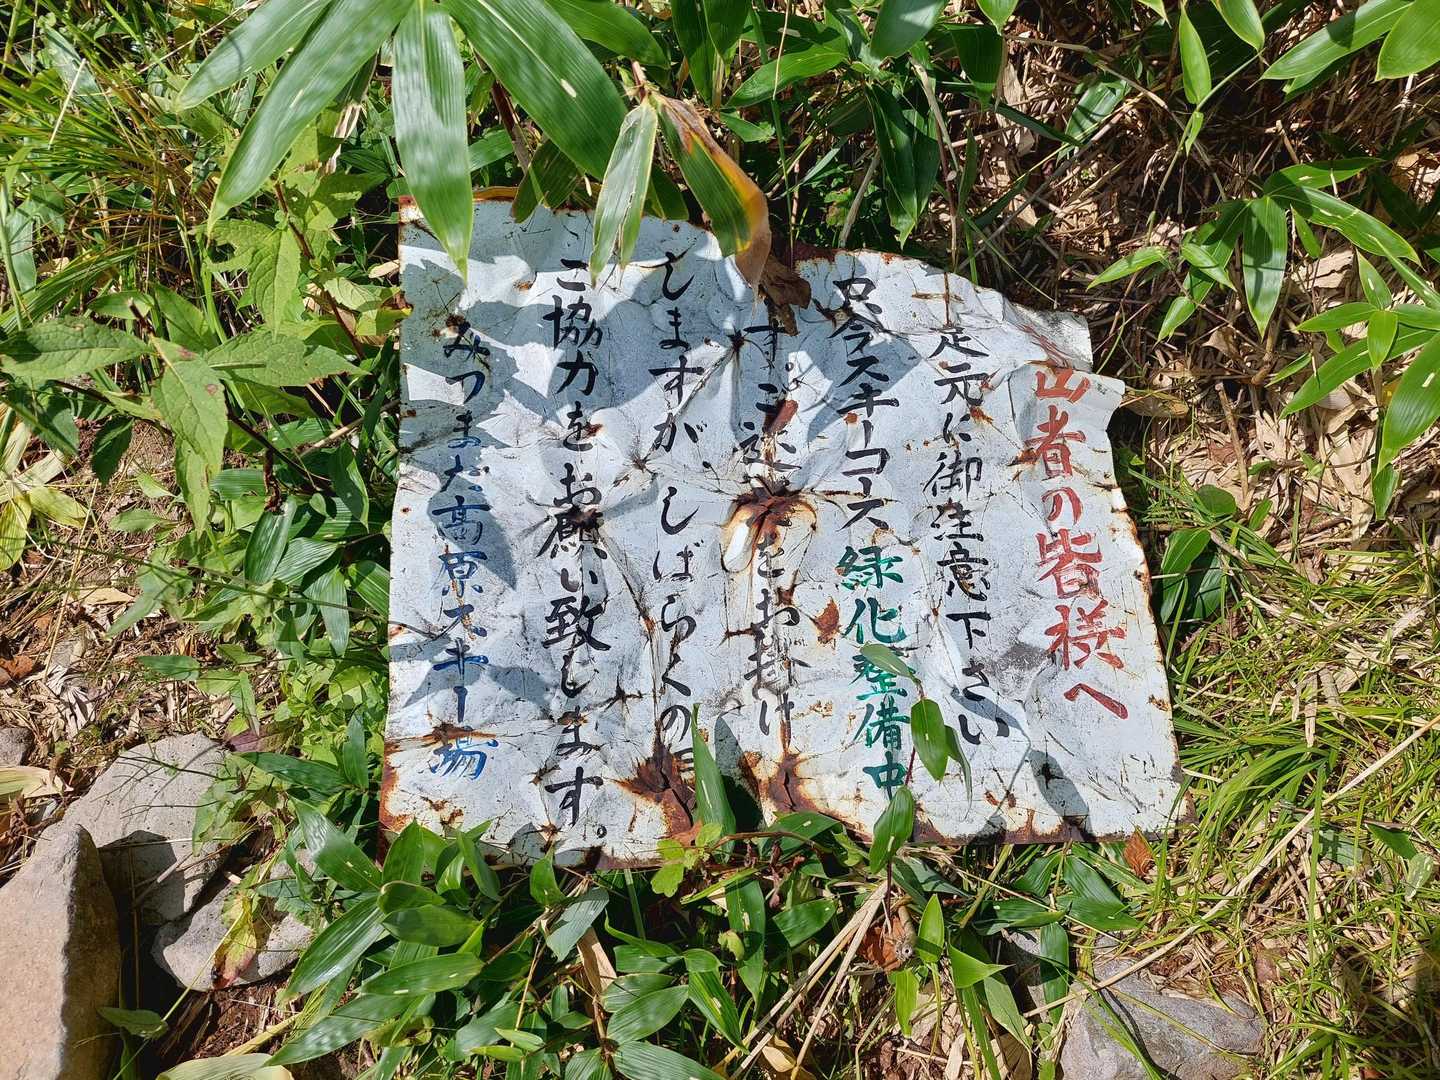 山者の皆様へ
足元に御注意下さい
只今スキーコース緑化整備中
す。ご迷をおかけ
しますが、しばらくの
ご協力をお願い致します。
みつまた高原スキー場